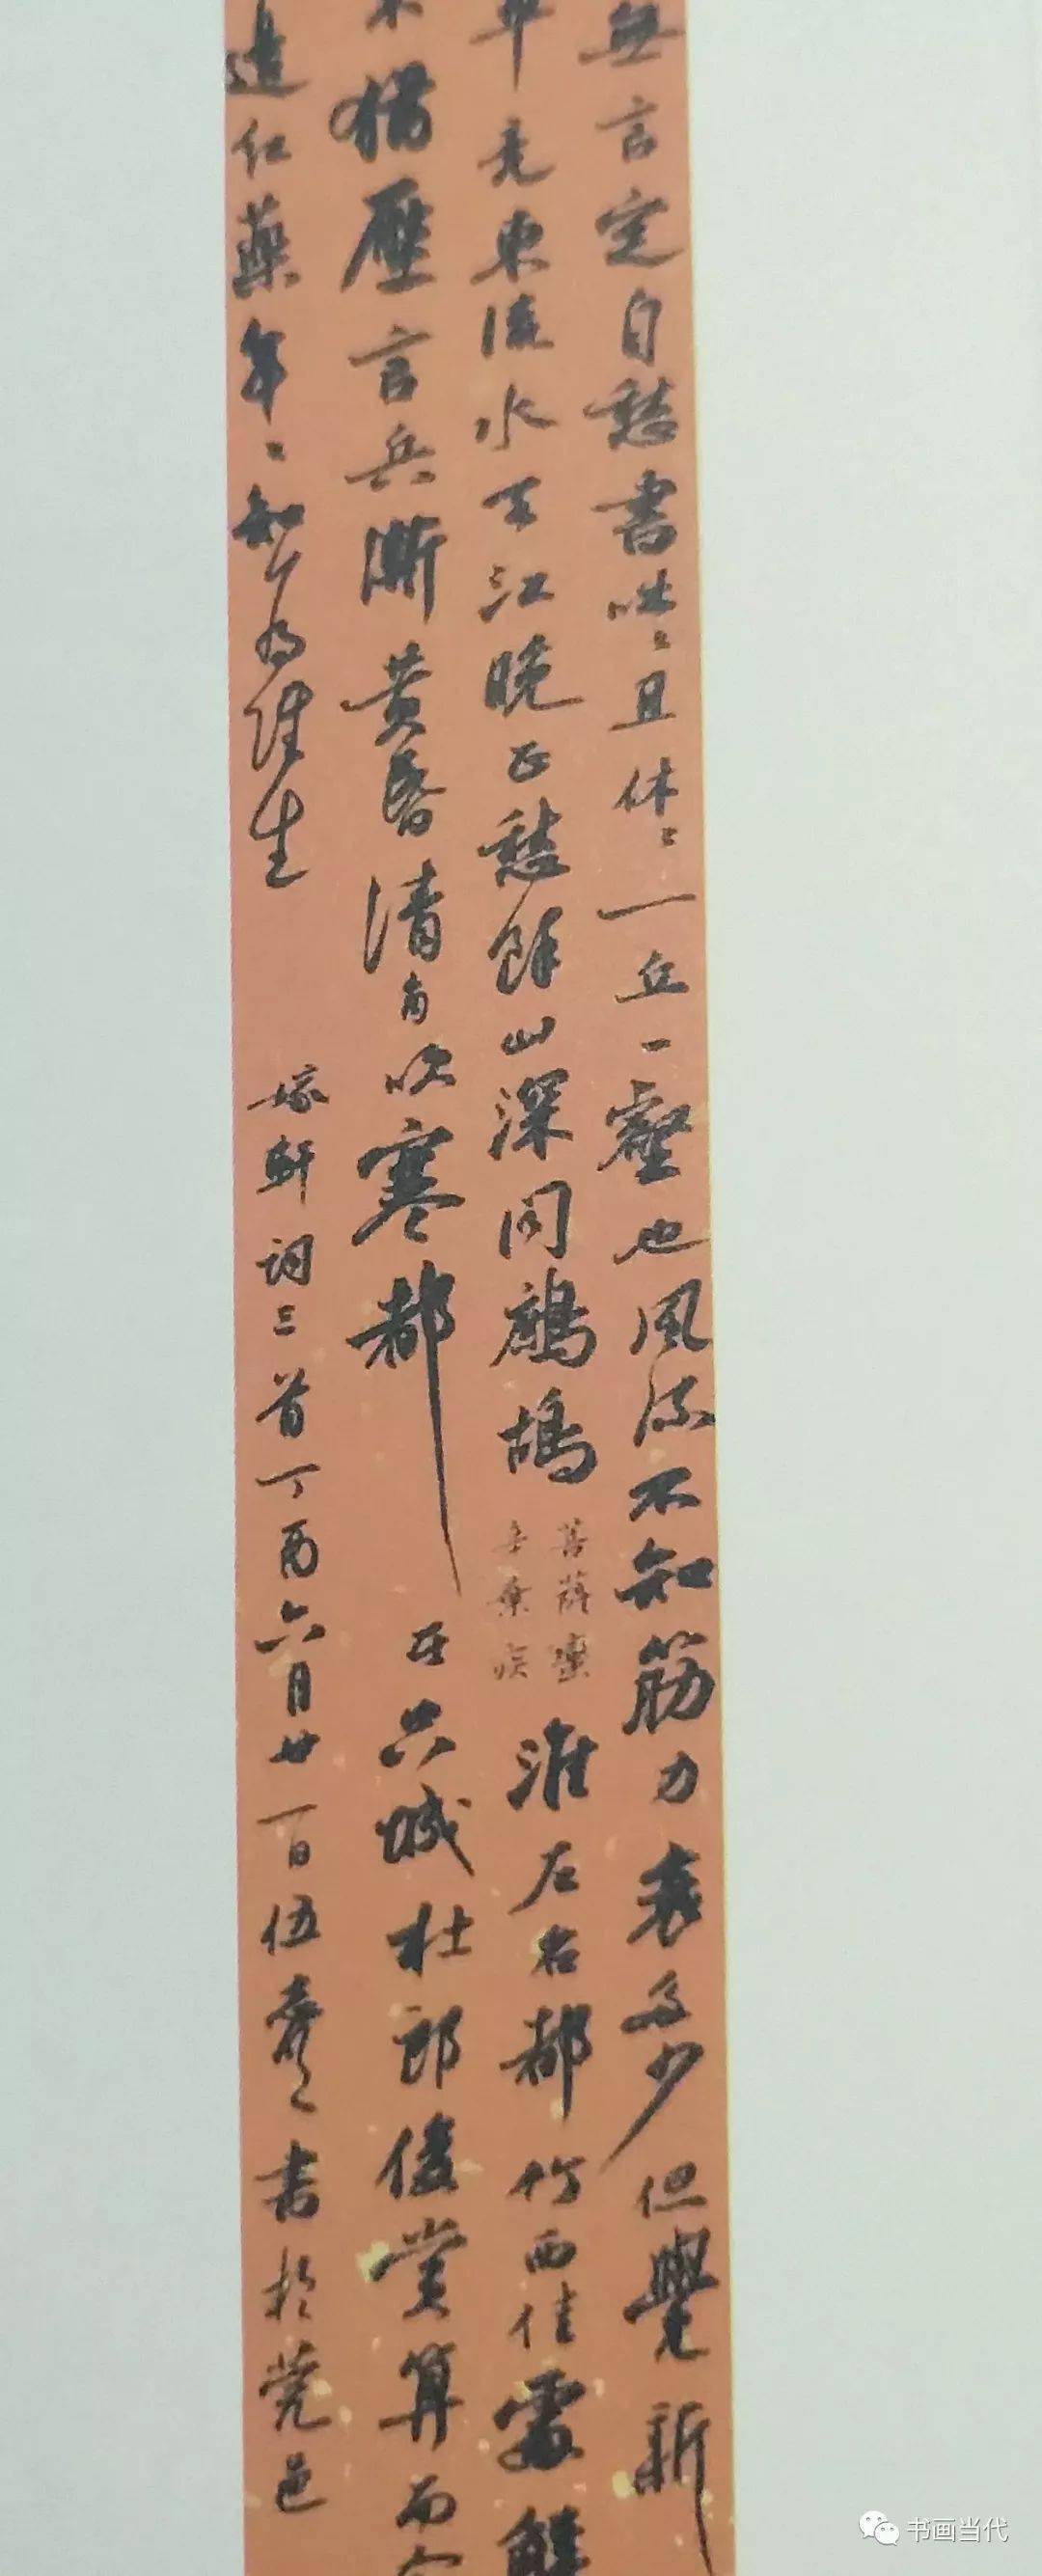 無言定自愁書咄〻且休〻一丘一壑也風流不知筋力衰多少但覺新
畢竟東流水江晚正愁余山深聞鷓鴣
菩薩蠻
辛棄疾
淮左名都竹西佳處解
木猶厭言兵漸黃昏清角吹寒都在空城杜郎俊賞算而今
邊紅藥年〻知為誰生
嫁軒詞三首丁酉六月廿一日伍
書於莞邑
书画当代